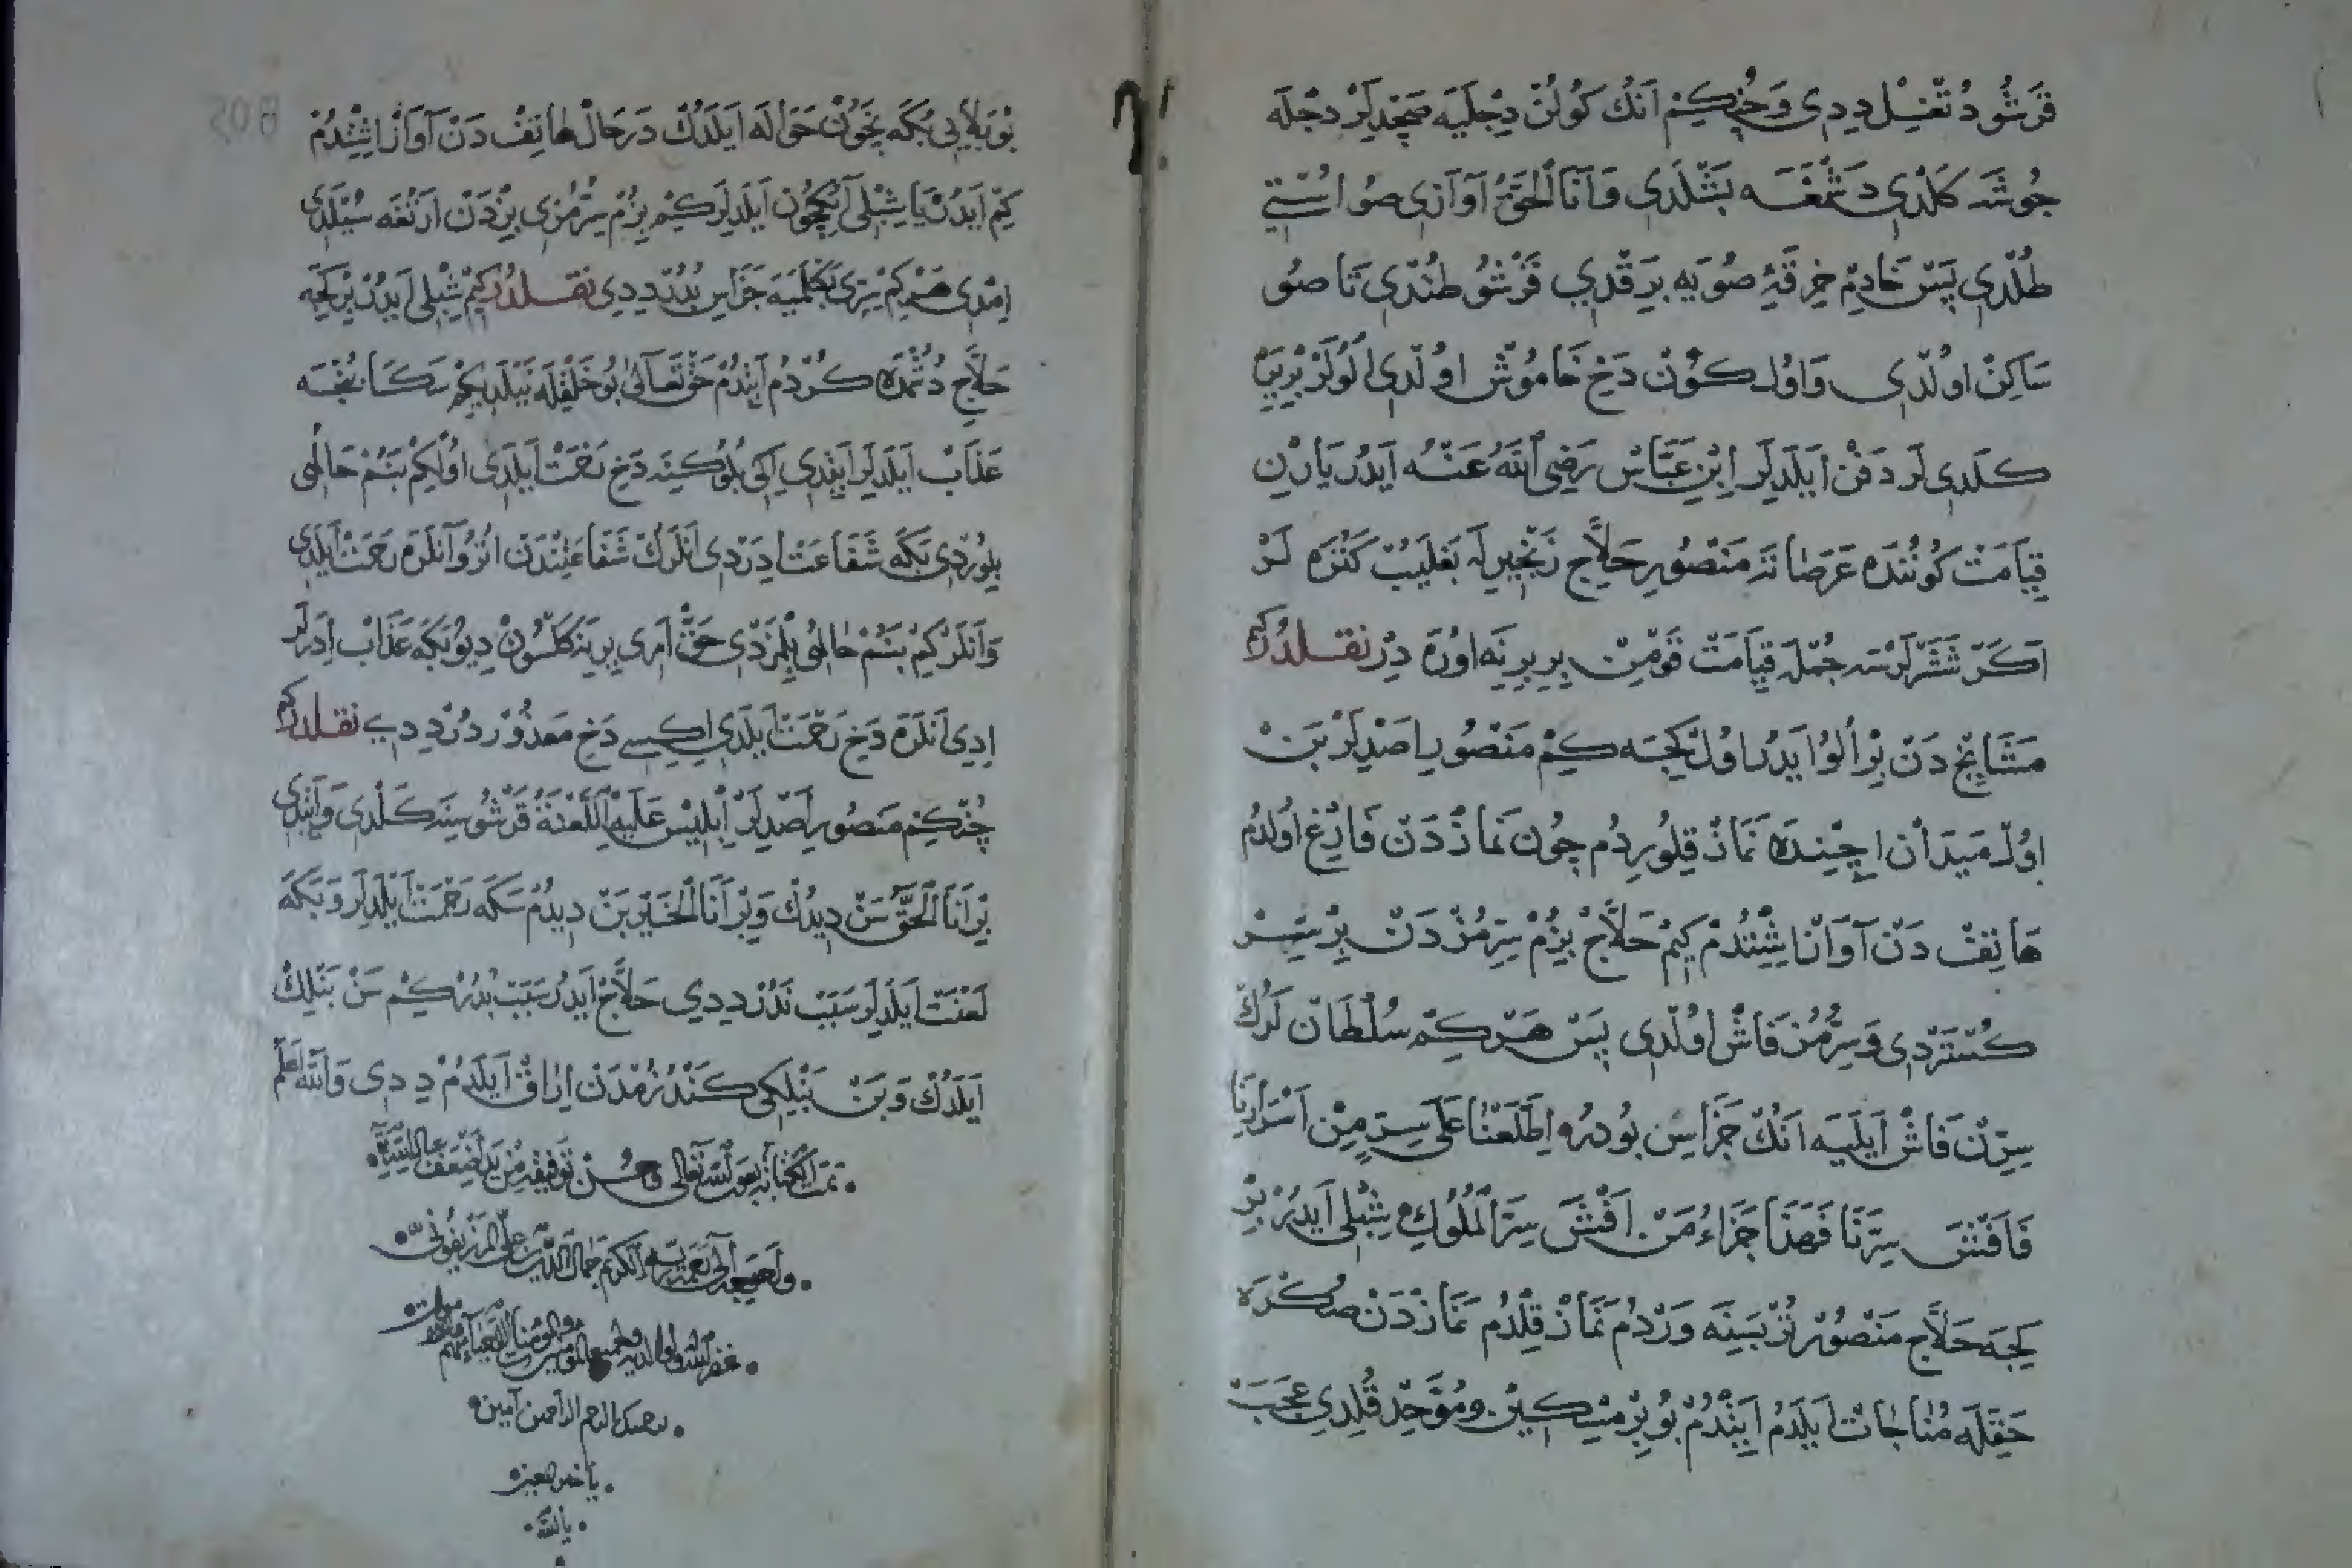 قَرْشُو دُتْغِیْل دِدِی وَچُنْكِیْم اَنُكْ كُولُنْ دِجْلَیَه صَچْدِیلَرْ دِجْلَه
جُوشَه كَلْدِی دَشْمَغَه بَشْلَدِی وَاَنَا الْحَقُّ آوَازِی صُو اُسْتِی
طُلْدِی پَسْ خَادِمْ خِرْقَهٔ صُویَه بِرَقْدِی قَرْشُو طُتْدِی تَا صُو
سَاكِنْ اوُلْدِی وَاوُل كُونْ دَخِ خَامُوشْ اوُلْدِی اَلُولَرْ بِرْیِیرَه
كَلْدِی لَر دَفْنْ اَیْلَدِیلَر اِبْنِ عَبَّاسْ رَضِیَ اللّٰهُ عَنْهُ اَیْدُر یَارِنْ
قِیَامَتْ كُونُنْدَه عَرَصَاتَه مَنْصُورِ حَلَّاجِ زَنْجِیرلَه بَغْلَیُبْ كَتُرَه لَرْ
اَكَرْ شَشَرْلَرْسَه جُمْلَه قِیَامَتْ قَوْمِنْ بِرِ بِرِنَه اوُرَه دِرْ نقلدرکم
مَشَایِخْ دَنْ بِرْ اُلُو اَیْدُر اوُلْ كِجَه كِیْم مَنْصُورِ اَصْدِیلَرْ بَنْ
اوُلْ مَیْدَانْ اِچِنْدَه نَمَازْ قِلُورِدُم چُونْ نَمَازْ دَنْ فَارِغْ اوُلدُم
هَاتِفْ دَنْ آوَازْ اِشِتْدُمْ كِیمْ حَلَّاجْ بِزُمْ سِرُّمُزْ دَنْ بِرْ سِرْ
كُسْتَرْدِی وَسِرُّمُز فَاشْ اوُلْدِی پَسْ هَرْكِمْ سُلْطَانْ لَرُكْ
سِرِّنْ فَاشْ اَیْلَیَه اَنُكْ جَزَاسِ بُودُر اِطَّلَعْنَا عَلَی سِرٍّ مِنْ اَسْرَارِنَا
فَاَفْشَی سِرَّنَا فَهَذَا جَزَاءُ مَنْ اَفْشَی سِرَّ الْمُلُوكِ شِبْلِی اَیْدُرْ بِرْ
كِجَه حَلَّاجِ مَنْصُورْ تُرْبَسِنَه وَرْدُمْ نَمَازْ قِلْدُمْ نَمَازْدَنْ صُكْرَه
حَقِلَه مُنَاجَاتْ اَیْلَدُمْ اَیِتْدُمْ بُو بِرْ مِسْكِینْ وَمُوَحِّدْ قُلِدِی عَجَبْ
بُو بَلَایِ بُكَه نِچُونْ حَوَالَه اَیْلَدُكْ دَرْحَالْ هَاتِفْ دَنْ آوَازْ اِشِتْدُمْ
كِمْ اَیْدُرْ یَا شِبْلِی آنُكِچُونْ اَیْلَدِیلَر كِیْم بِزُمْ سِرُّمُزِی بِزْدَنْ اَرْتُغَه سُیْلَدِی
اِمْدِی هَرْكِمْ سِرِّی بَكْلَمَیَه جَزَاسِ بُدُرْ دِدِی نقلدرکم شِبْلِی اَیْدُرْ بِرْكِجَه
حَلَّاجِ دُشُمْدَه كُرْدُم اَیِتْدُمْ حَقْ تَعَالَی بُو خَلْقِلَه نَیْلَدِی كِمْ سَكَا بُنْجَه
عَذَابْ اَیْلَدِیلَر اَیِتْدِی اِكِی بُلُوكِنَه دَخِ رَحْمَتْ اَیْلَدِی اوُلْ كِمْ بَنُمْ حَالُمِی
بِلُورْدِی بَكَه شَفَاعَتْ اِدَرْدِی اَنْلَرُكْ شَفَاعَتِنْدَنْ اُتْرُو آنْلَرَه رَحْمَتْ اَیْلَدِی
وَاَنْلَرْ كِیمْ بَنُمْ حَالُمِی بِلْمَزْدِی حَقْ اَمْرِی یِرِینَه كَلْسُونْ دِیُو بَكَه عَذَابْ اِدَرْلَر
اِدِی اَنْلَرَه دَخِ رَحْمَتْ اَیْلَدِی اِكِیسِی دَخِ مَعْذُورْدُرْ دِدِی نقلدرکم
چُنْكِمْ مَنْصُورِ اَصْدِیلَرْ اِبْلِیسْ عَلَیْهِ اللَّعْنَةُ قَرْشُوسِنَه كَلْدِی وَاَیِتْدِی
بِرْ اَنَا الْحَقُّ سَنْ دِیدُكْ وَبِرْ اَنَا الْخَیْرُ بَنْ دِیدُمْ سَكَه رَحْمَتْ اَیْلَدِیلَر وَبَكَه
لَعْنَتْ اَیْلَدِیلَر سَبَبْ نَدُرْ دِدِی حَلَّاجْ اَیْدُر سَبَبْ بُدُرْ كِمْ سَنْ بَنْلِكْ
اَیْلَدُكْ وَبَنْ بَنْلِكِی كَنْدُزُمْدَنْ اِرَاقْ اَیْلَدُمْ دِدِی وَاللّٰهُ اَعْلَمُ
تمت الكتابة بعون الله تعالی وحسن توفیقه من ید اضعف
غفر الله له ولوالدیه ولجمیع المؤمنین والمؤمنات
برحمتك یا ارحم الراحمین آمین
یا الله